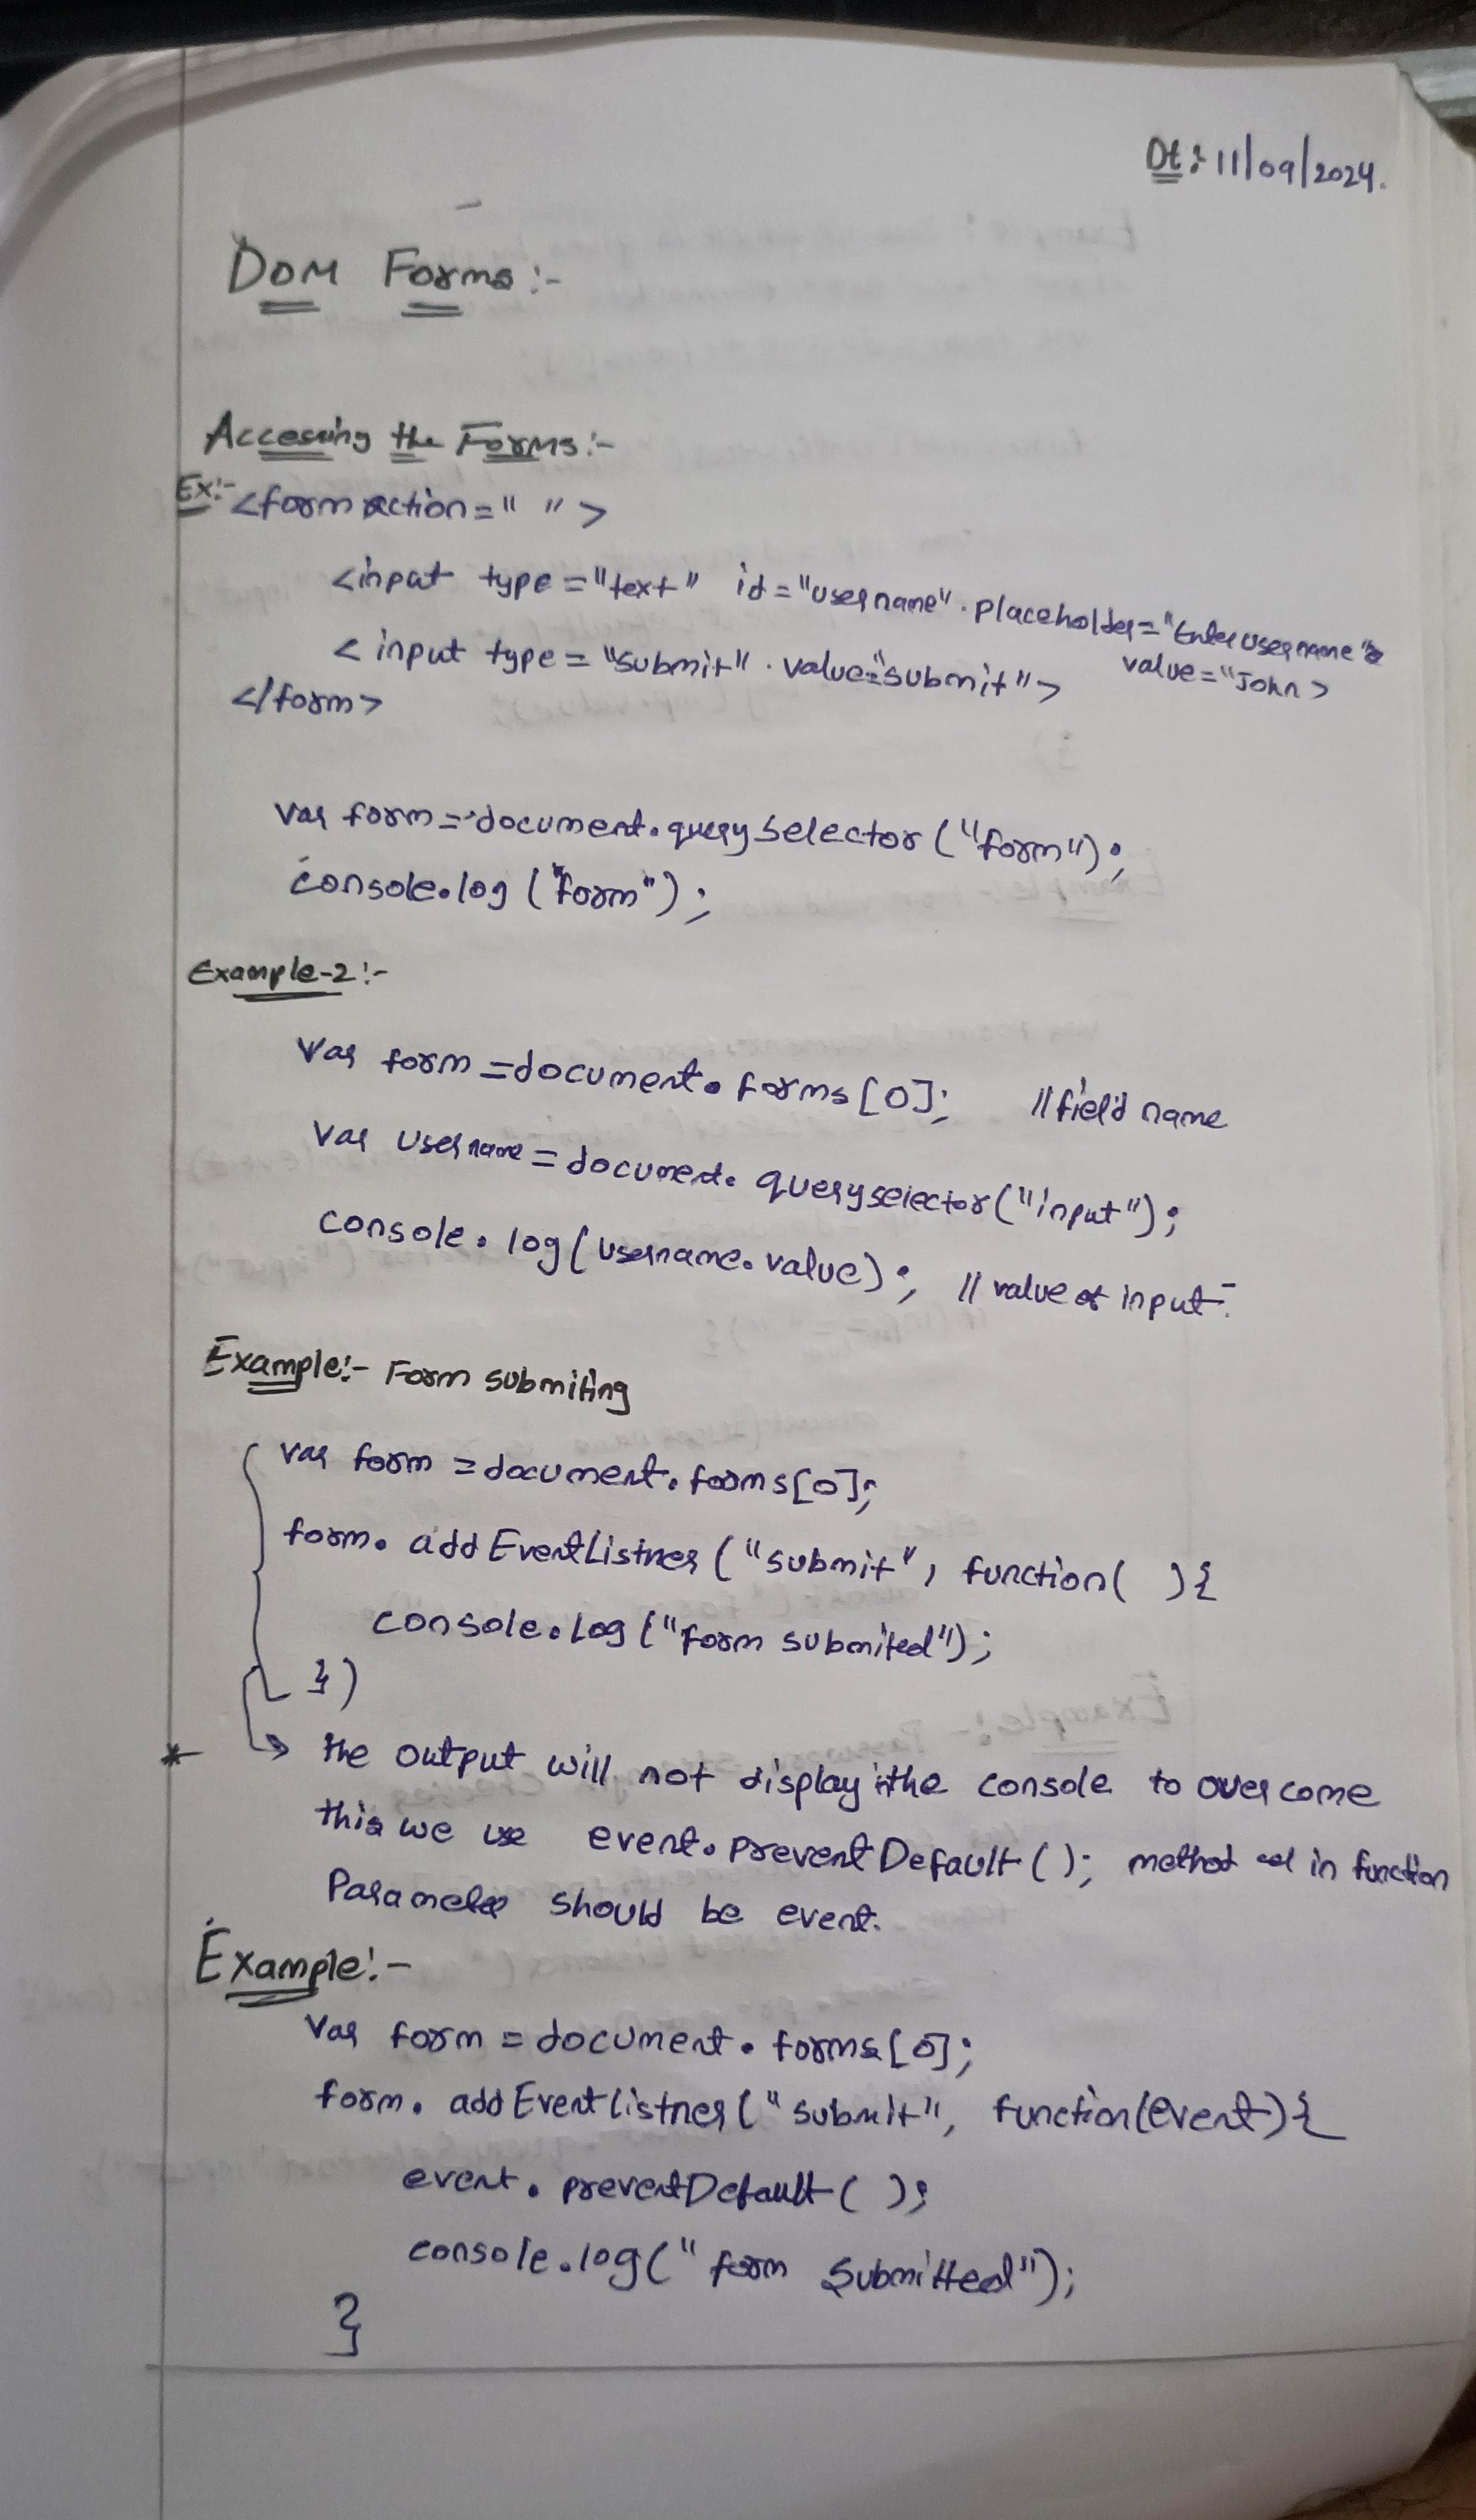 Dt: 11/09/2024.
DOM Forms:-
Accessing the Forms:-
Ex:- <form action=" ">
<input type="text" id="username" placeholder="Enter username"
value="John>
<input type="submit" value="submit">
</form>
var form = document.querySelector("form");
console.log("form");
Example-2:-
var form = document.forms[0]; // field name
var username = document.queryselector("input");
console.log(username.value); // value of input.
Example:- Form submiting
var form = document.forms[0];
form.addEventListner("submit", function( ){
console.log("form submited");
})
* the output will not display in the console to over come
this we use event.preventDefault(); method in function
Parameter should be event.
Example:-
var form = document.forms[0];
form.addEventListner("submit", function(event){
event.preventDefault( );
console.log("form submitted");
}